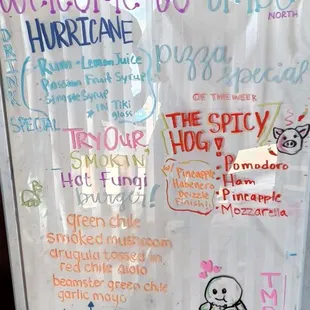 WELCOME
NORTH
DRINK
SPECIAL
HURRICANE
• Rum • Lemon Juice
• Passion Fruit Syrup
• Simple Syrup
IN TIKI
glass
pizza
special
OF THE WEEK
THE SPICY
HOG!
w/ Pineapple
Habenero
Drizzle
Finish!!
• Pomodoro
• Ham
• Pineapple
• Mozzarella
TRY OUR
SMOKIN'
Hot Fungi
burger!
green chile
smoked mushroom
arugula tossed in
red chile aioli
beamster green chile
garlic mayo